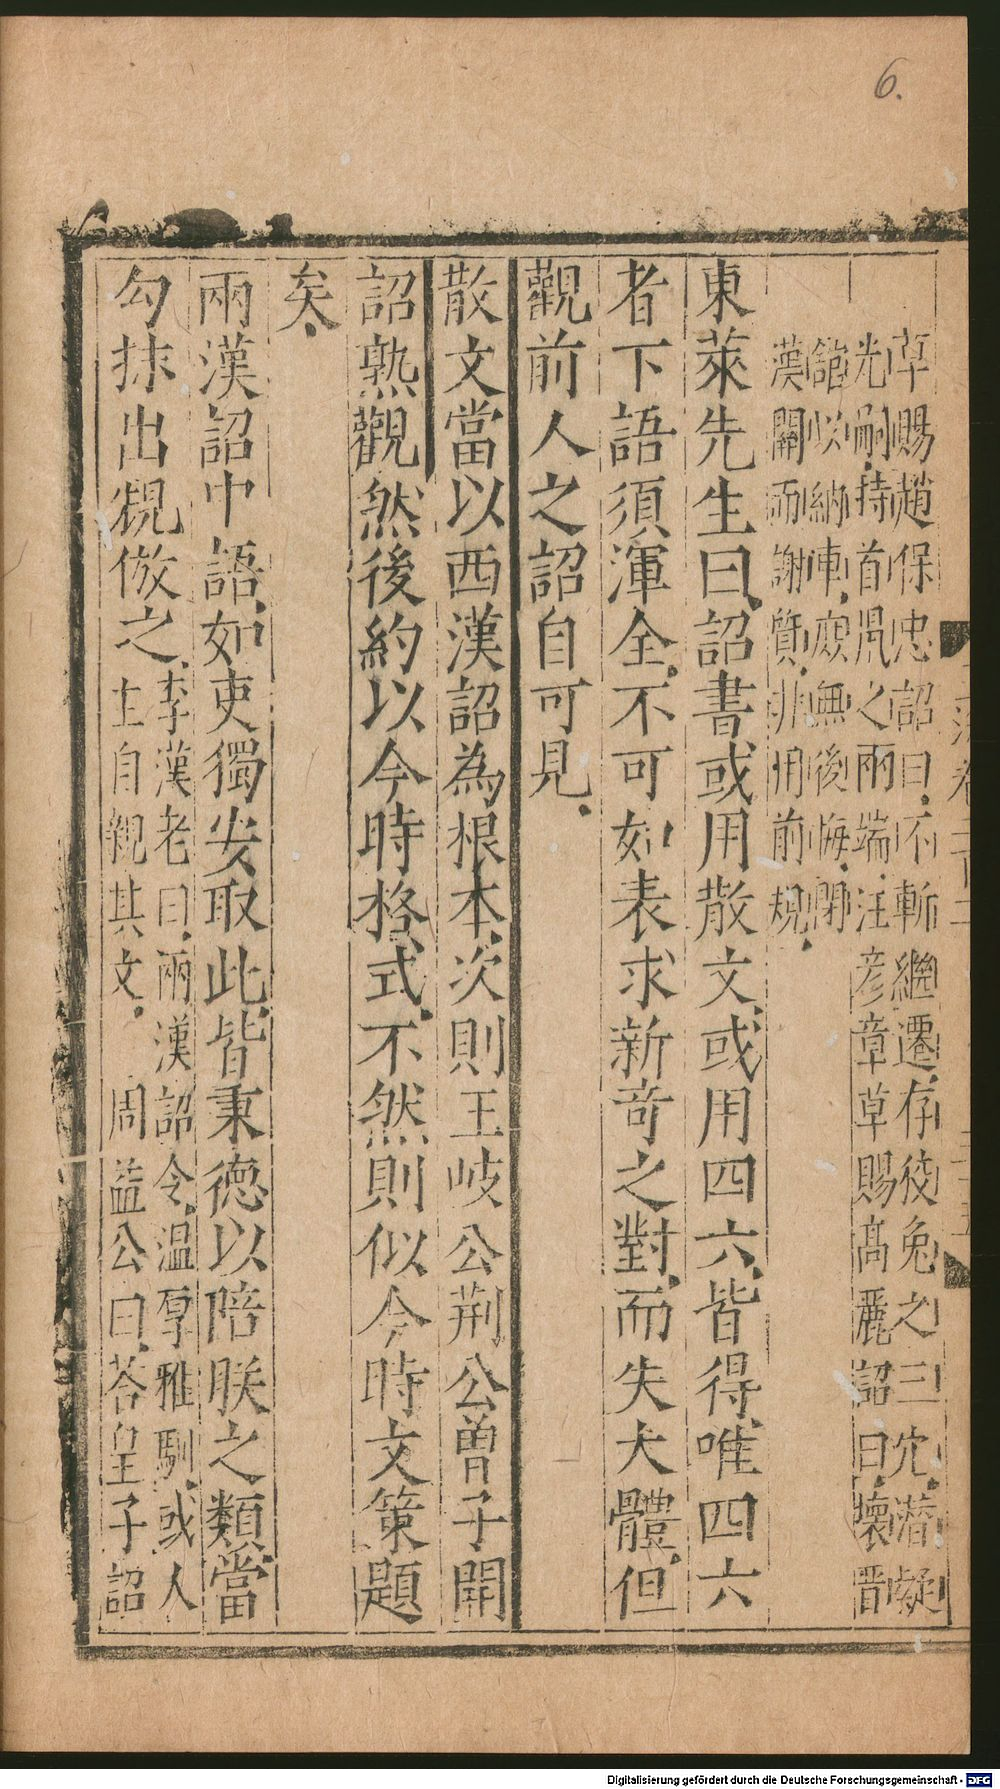 6.
草賜趙保忠詔曰不斬繼遷存狡兔之三穴潜疑
光嗣持首䑕之兩端注彦章草賜髙麗詔曰壊晋
舘以納車庻無後悔閉
漢關而謝質非用前規
東萊先生曰詔書或用散文或用四六皆得唯四六
者下語須渾全不可如表求新竒之對而失大體但
觀前人之詔自可見
散文當以西漢詔為根本次則王岐公荆公曽子開
詔熟觀然後約以今時格式不然則似今時文策題
矣
兩漢詔中語如吏獨安取此皆秉德以陪朕之類當
勾抹出規倣之李漢老曰兩漢詔令温厚雅馴或人
主自親其文 周益公曰荅皇子詔
Digitalisierung gefördert durch die Deutsche Forschungsgemeinschaft - DFG